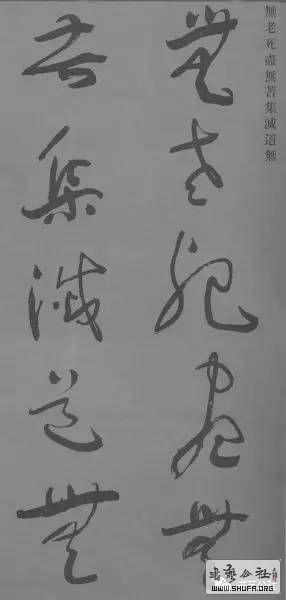 無老死盡無苦集滅道無
無老死盡無
苦集滅道無
书艺公社
WWW.SHUFA.ORG